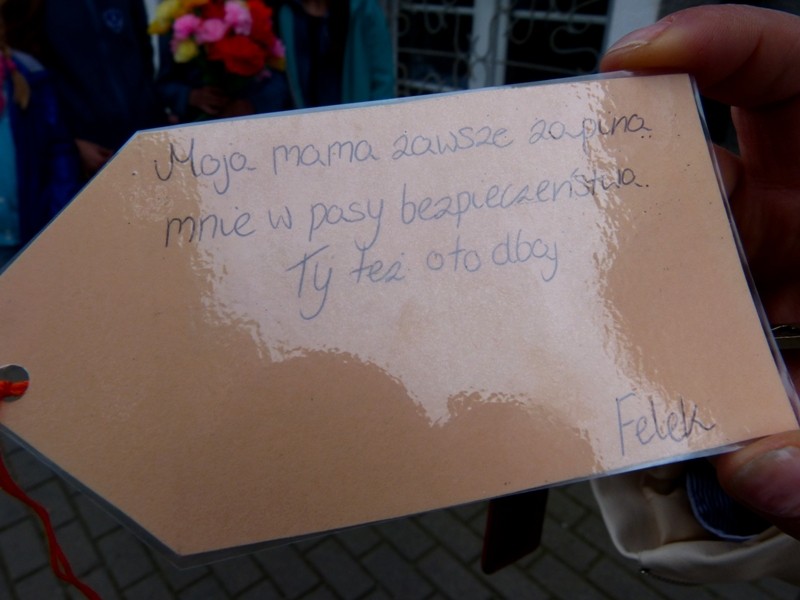 Moja mama zawsze zapina
mnie w pasy bezpieczeństwa.
Ty też oto dbaj
Felek